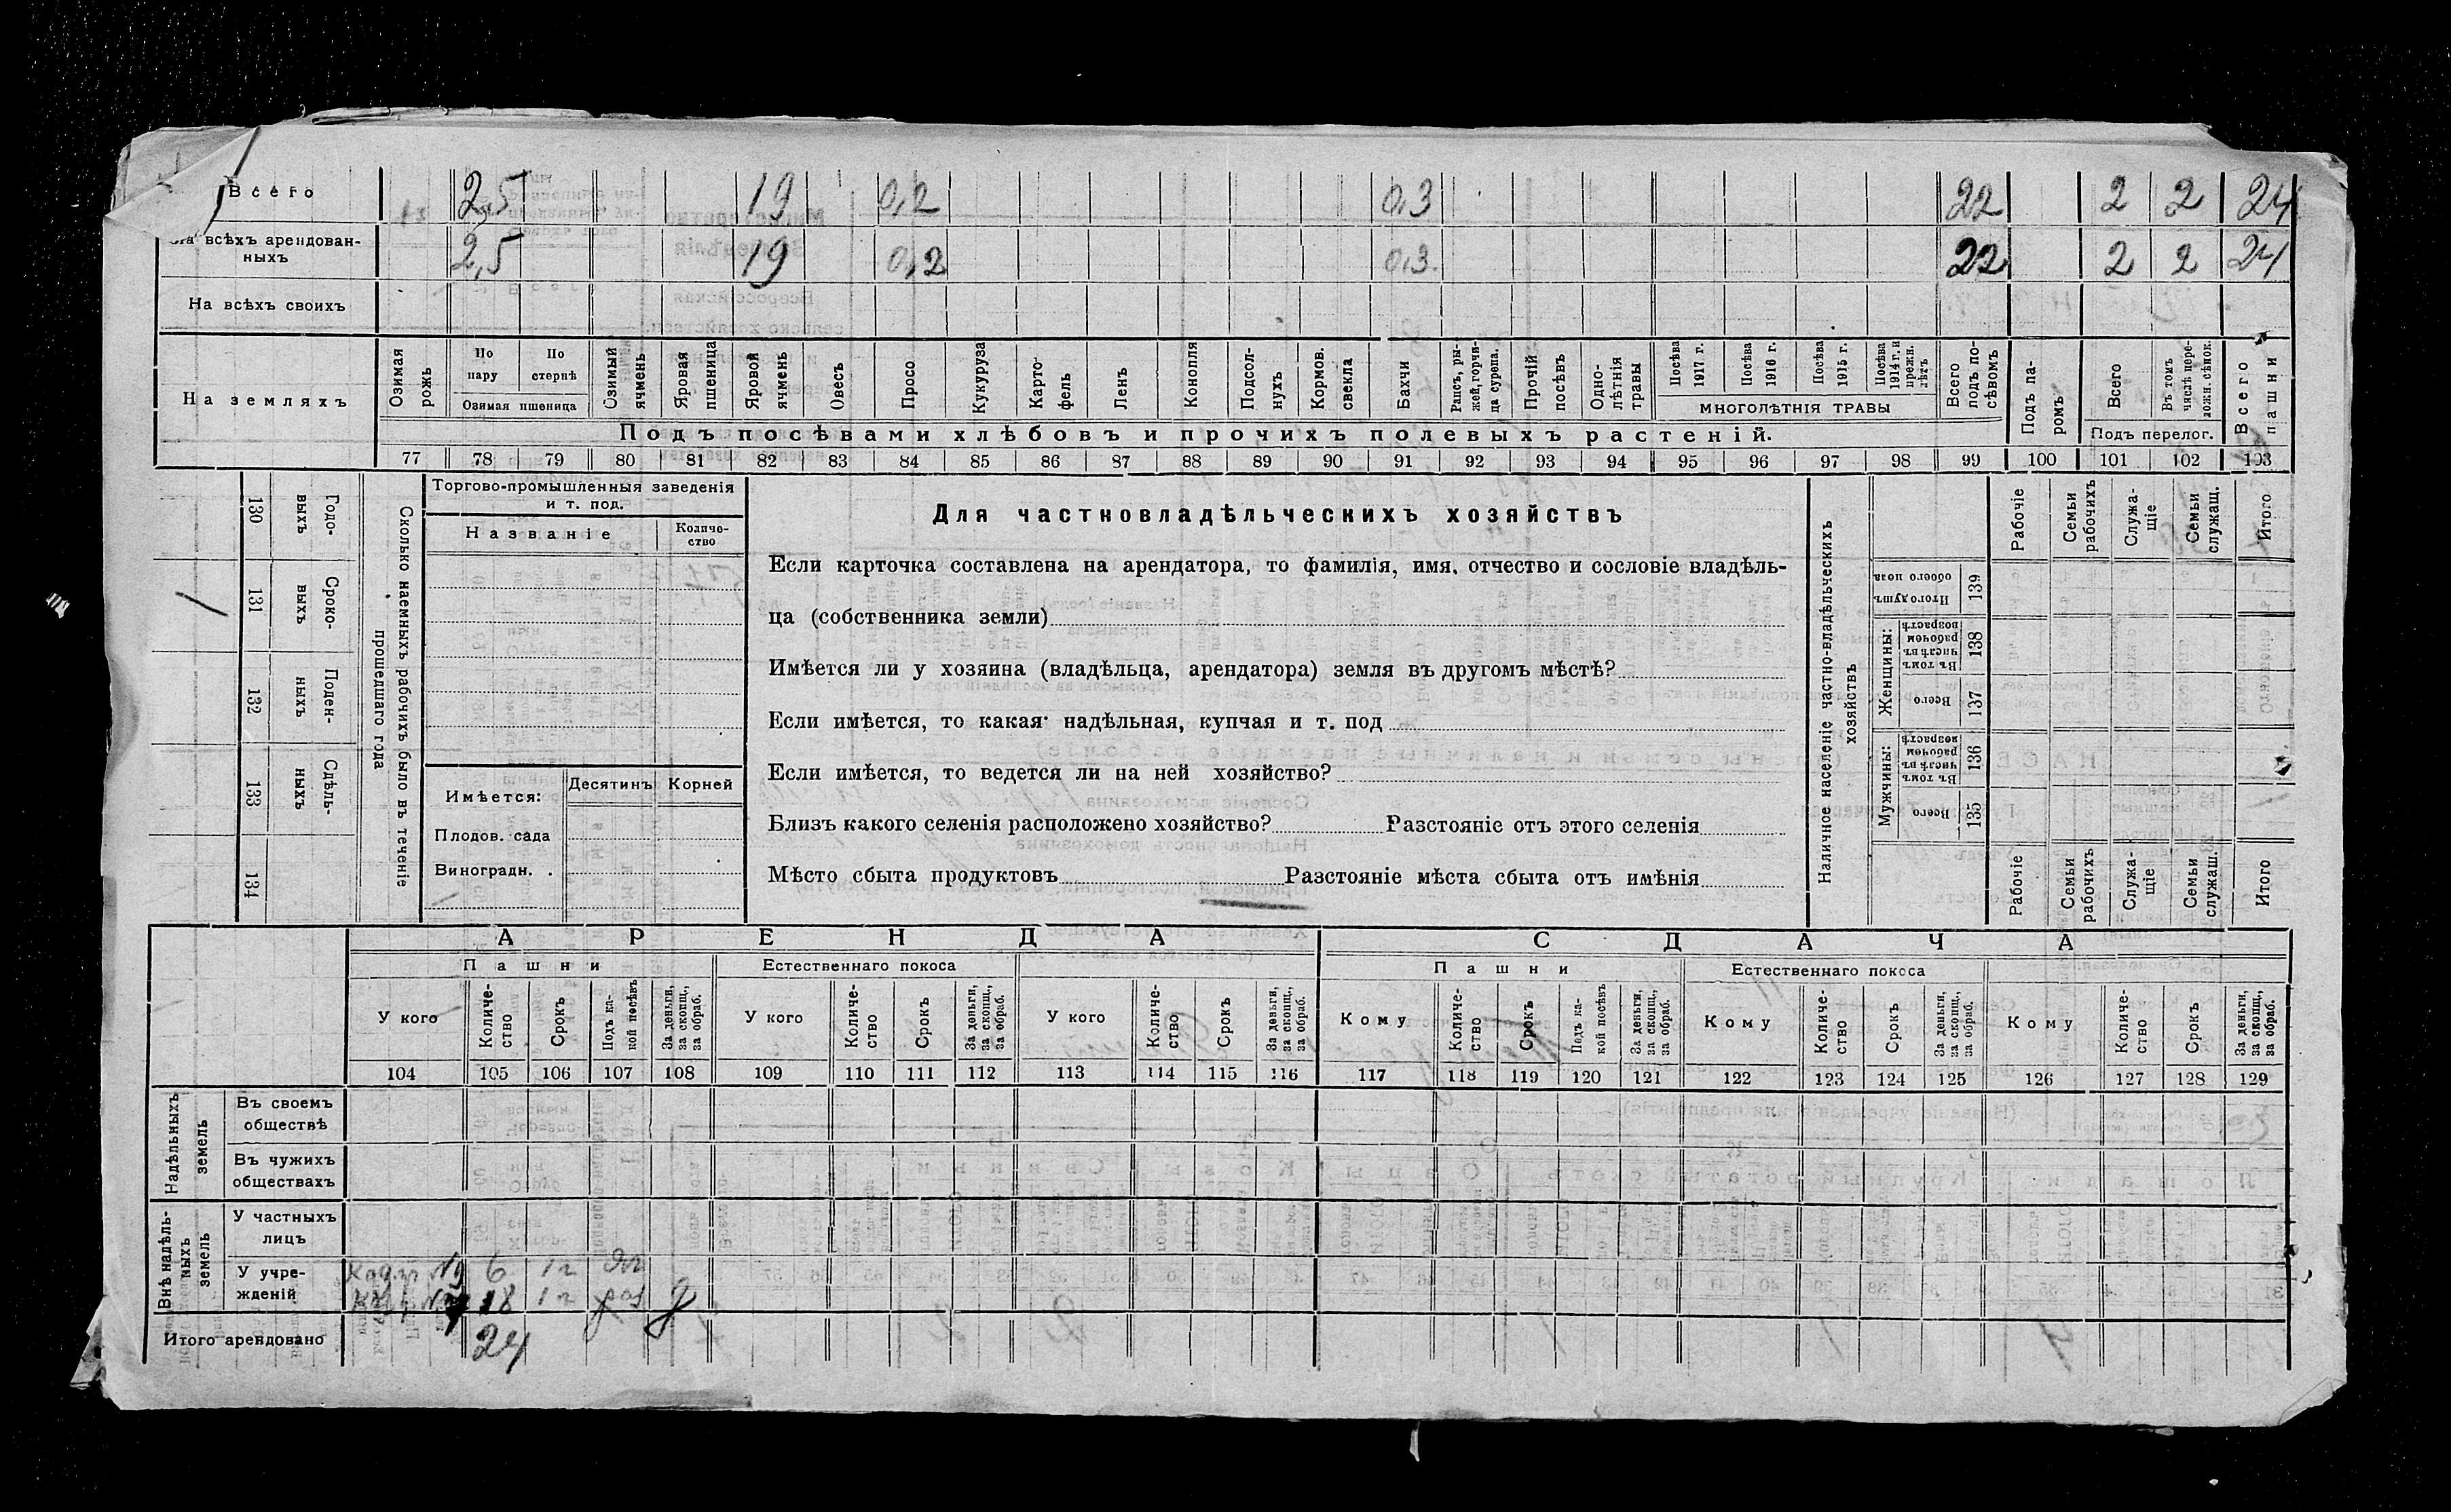 Всего 2,5 19 0,2 0,3 22 2 2 24
На всѣхъ арендован-
ныхъ 2,5 19 0,2 0,3 22 2 2 24
На всѣхъ своихъ
На земляхъ
Озимая рожь
По пару
По стернѣ
Озимая пшеница
Озимый ячмень
Яровая пшеница
Яровой ячмень
Овесъ
Просо
Кукуруза
Карто-
фель
Ленъ
Конопля
Подсол-
нухъ
Кормов. свекла
Бахчи
Рапсъ, ры-
жей, горчи-
ца сурепа.
Прочій посѣвъ
Одно-
лѣтнія травы
Посѣва 1917 г.
Посѣва 1916 г.
Посѣва 1915 г.
Посѣва 1914 г. и прежн. лѣтъ
МНОГОЛѢТНІЯ ТРАВЫ
Всего подъ по-
сѣвомъ
Подъ па-
ромъ
Всего
Въ томъ числѣ пере-
ложн. сѣнок.
Подъ перелог.
Всего пашни
Подъ посѣвами хлѣбовъ и прочихъ полевыхъ растеній.
77 78 79 80 81 82 83 84 85 86 87 88 89 90 91 92 93 94 95 96 97 98 99 100 101 102 103
130 Годо-
выхъ
1 131 Сроко-
выхъ
132 Поден-
ныхъ
133 Сдѣль-
ныхъ
134
Сколько наемныхъ рабочихъ было въ теченіе
прошедшаго года
Торгово-промышленныя заведенія
и т. под.
Названіе
Количе-
ство
Имѣется: Десятинъ Корней
Плодов. сада
Виноградн. .
Для частновладѣльческихъ хозяйствъ
Если карточка составлена на арендатора, то фамилія, имя, отчество и сословіе владѣль-
ца (собственника земли)
Имѣется ли у хозяина (владѣльца, арендатора) земля въ другомъ мѣстѣ?
Если имѣется, то какая: надѣльная, купчая и т. под
Если имѣется, то ведется ли на ней хозяйство?
Близъ какого селенія расположено хозяйство? Разстояніе отъ этого селенія
Мѣсто сбыта продуктовъ Разстояніе мѣста сбыта отъ имѣнія
Наличное населеніе частно-владѣльческихъ
хозяйствъ
Рабочіе
Семьи рабочихъ
Служа-
щіе
Семьи служащ.
Итого
Итого душъ обоего пола 139
Женщины:
Въ томъ числѣ въ рабочемъ возрастѣ 138
Всего 137
Мужчины:
Въ томъ числѣ въ рабочемъ возрастѣ 136
Всего 135
Рабочіе
Семьи рабочихъ
Служа-
щіе
Семьи служащ.
Итого
АРЕНДА СДАЧА
Пашни Естественнаго покоса Пашни Естественнаго покоса
У кого
Количе-
ство
Срокъ
Подъ ка-
кой посѣвъ
За деньги, за скопщ., за обраб.
У кого
Количе-
ство
Срокъ
За деньги, за скопщ., за обраб.
У кого
Количе-
ство
Срокъ
За деньги, за скопщ., за обраб.
Кому
Количе-
ство
Срокъ
Подъ ка-
кой посѣвъ
За деньги, за скопщ., за обраб.
Кому
Количе-
ство
Срокъ
За деньги, за скопщ., за обраб.
Кому
Количе-
ство
Срокъ
За деньги, за скопщ., за обраб.
104 105 106 107 108 109 110 111 112 113 114 115 116 117 118 119 120 121 122 123 124 125 126 127 128 129
Надѣльныхъ земель
Въ своемъ
обществѣ
Въ чужихъ
обществахъ
Внѣ надѣль-
ныхъ земель
У частныхъ
лицъ
У учре-
жденій
6 1 г
18 1 г
Итого арендовано 24